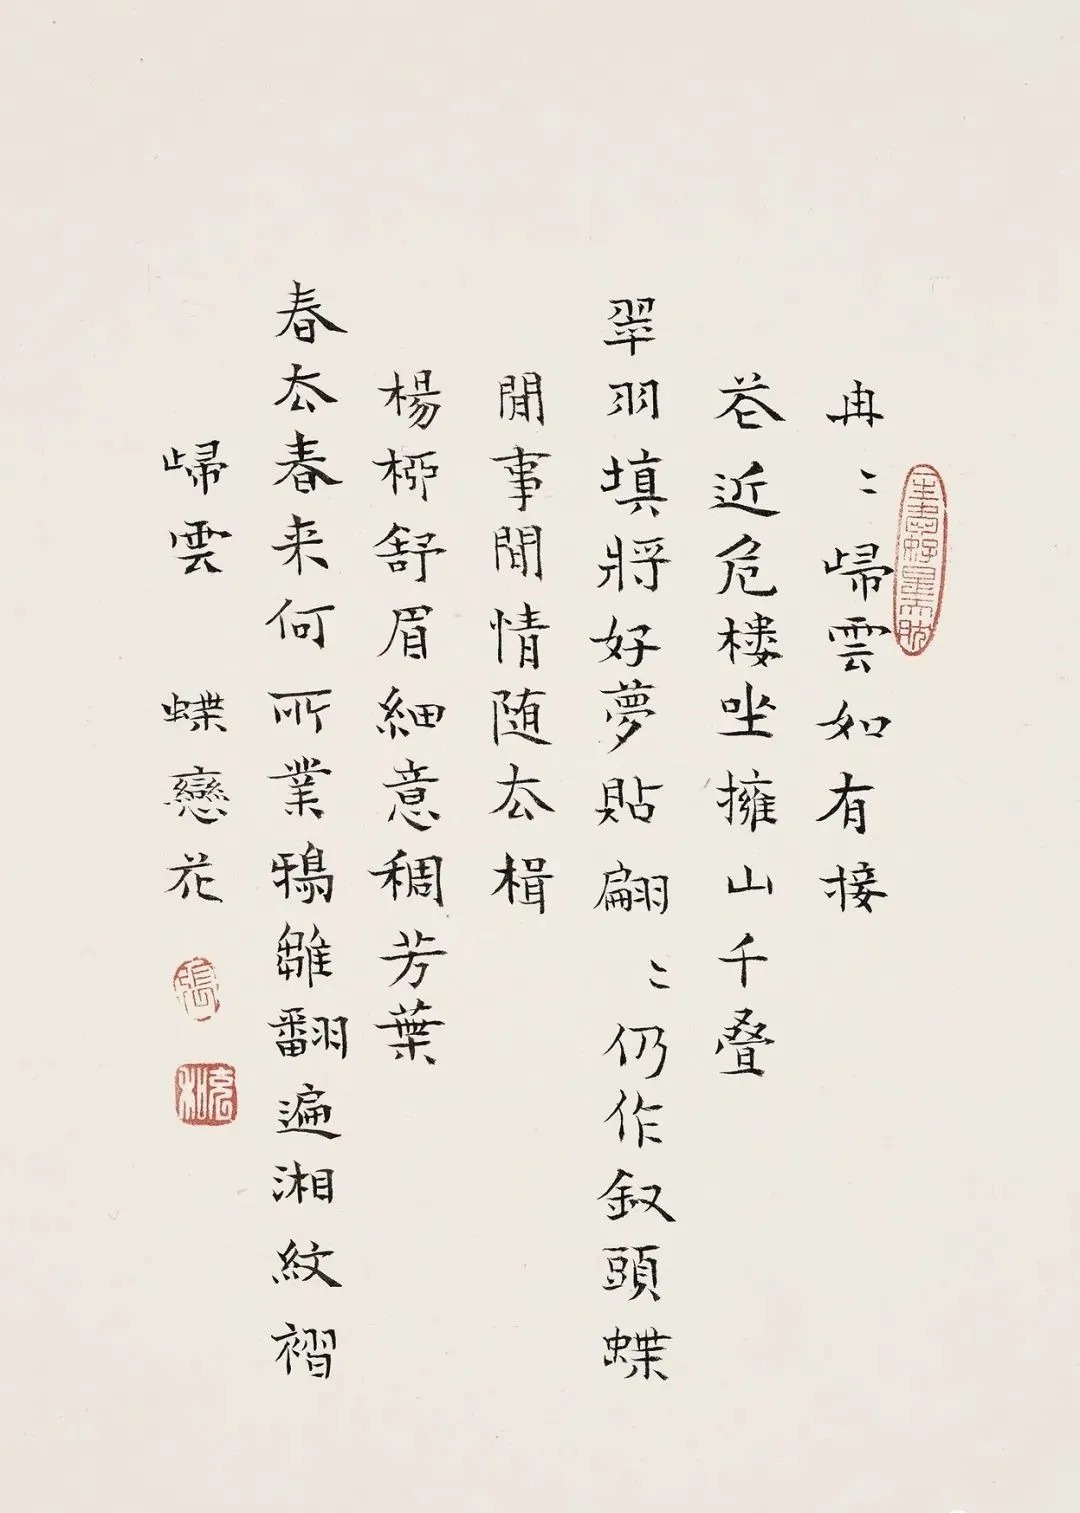 冉〻歸雲如有接
花近危楼坐擁山千叠
翠羽填將好夢貼翩〻仍作釵頭蝶
閒事閒情随去楫
楊柳舒眉細意稠芳葉
春去春来何所業鴉雛翻遍湘紋褶
歸雲 蝶戀花
張